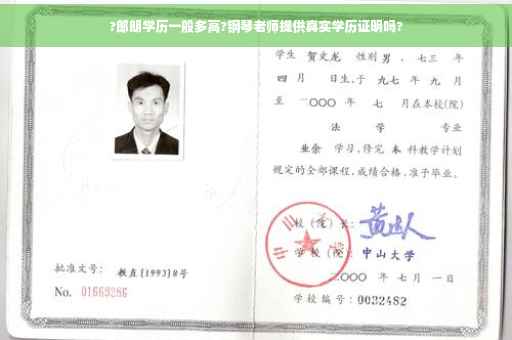 ?郎朗学历一般多高?钢琴老师提供真实学历证明吗?
学生 贺文龙 性别 男 、七三 年
四 月 日生,于 九七 年 九 月
至 二〇〇〇 年 七 月在本校(院)
法 学 专业
业余 学习,修完 本 科教学计划
规定的全部课程,成绩合格,准予毕业。
校(院)长:
学校(院): 中山大学
二〇〇〇 年 七 月 一 日
批准文号: 教直[1993]8号
No. 01669286
学校编号: 0032482